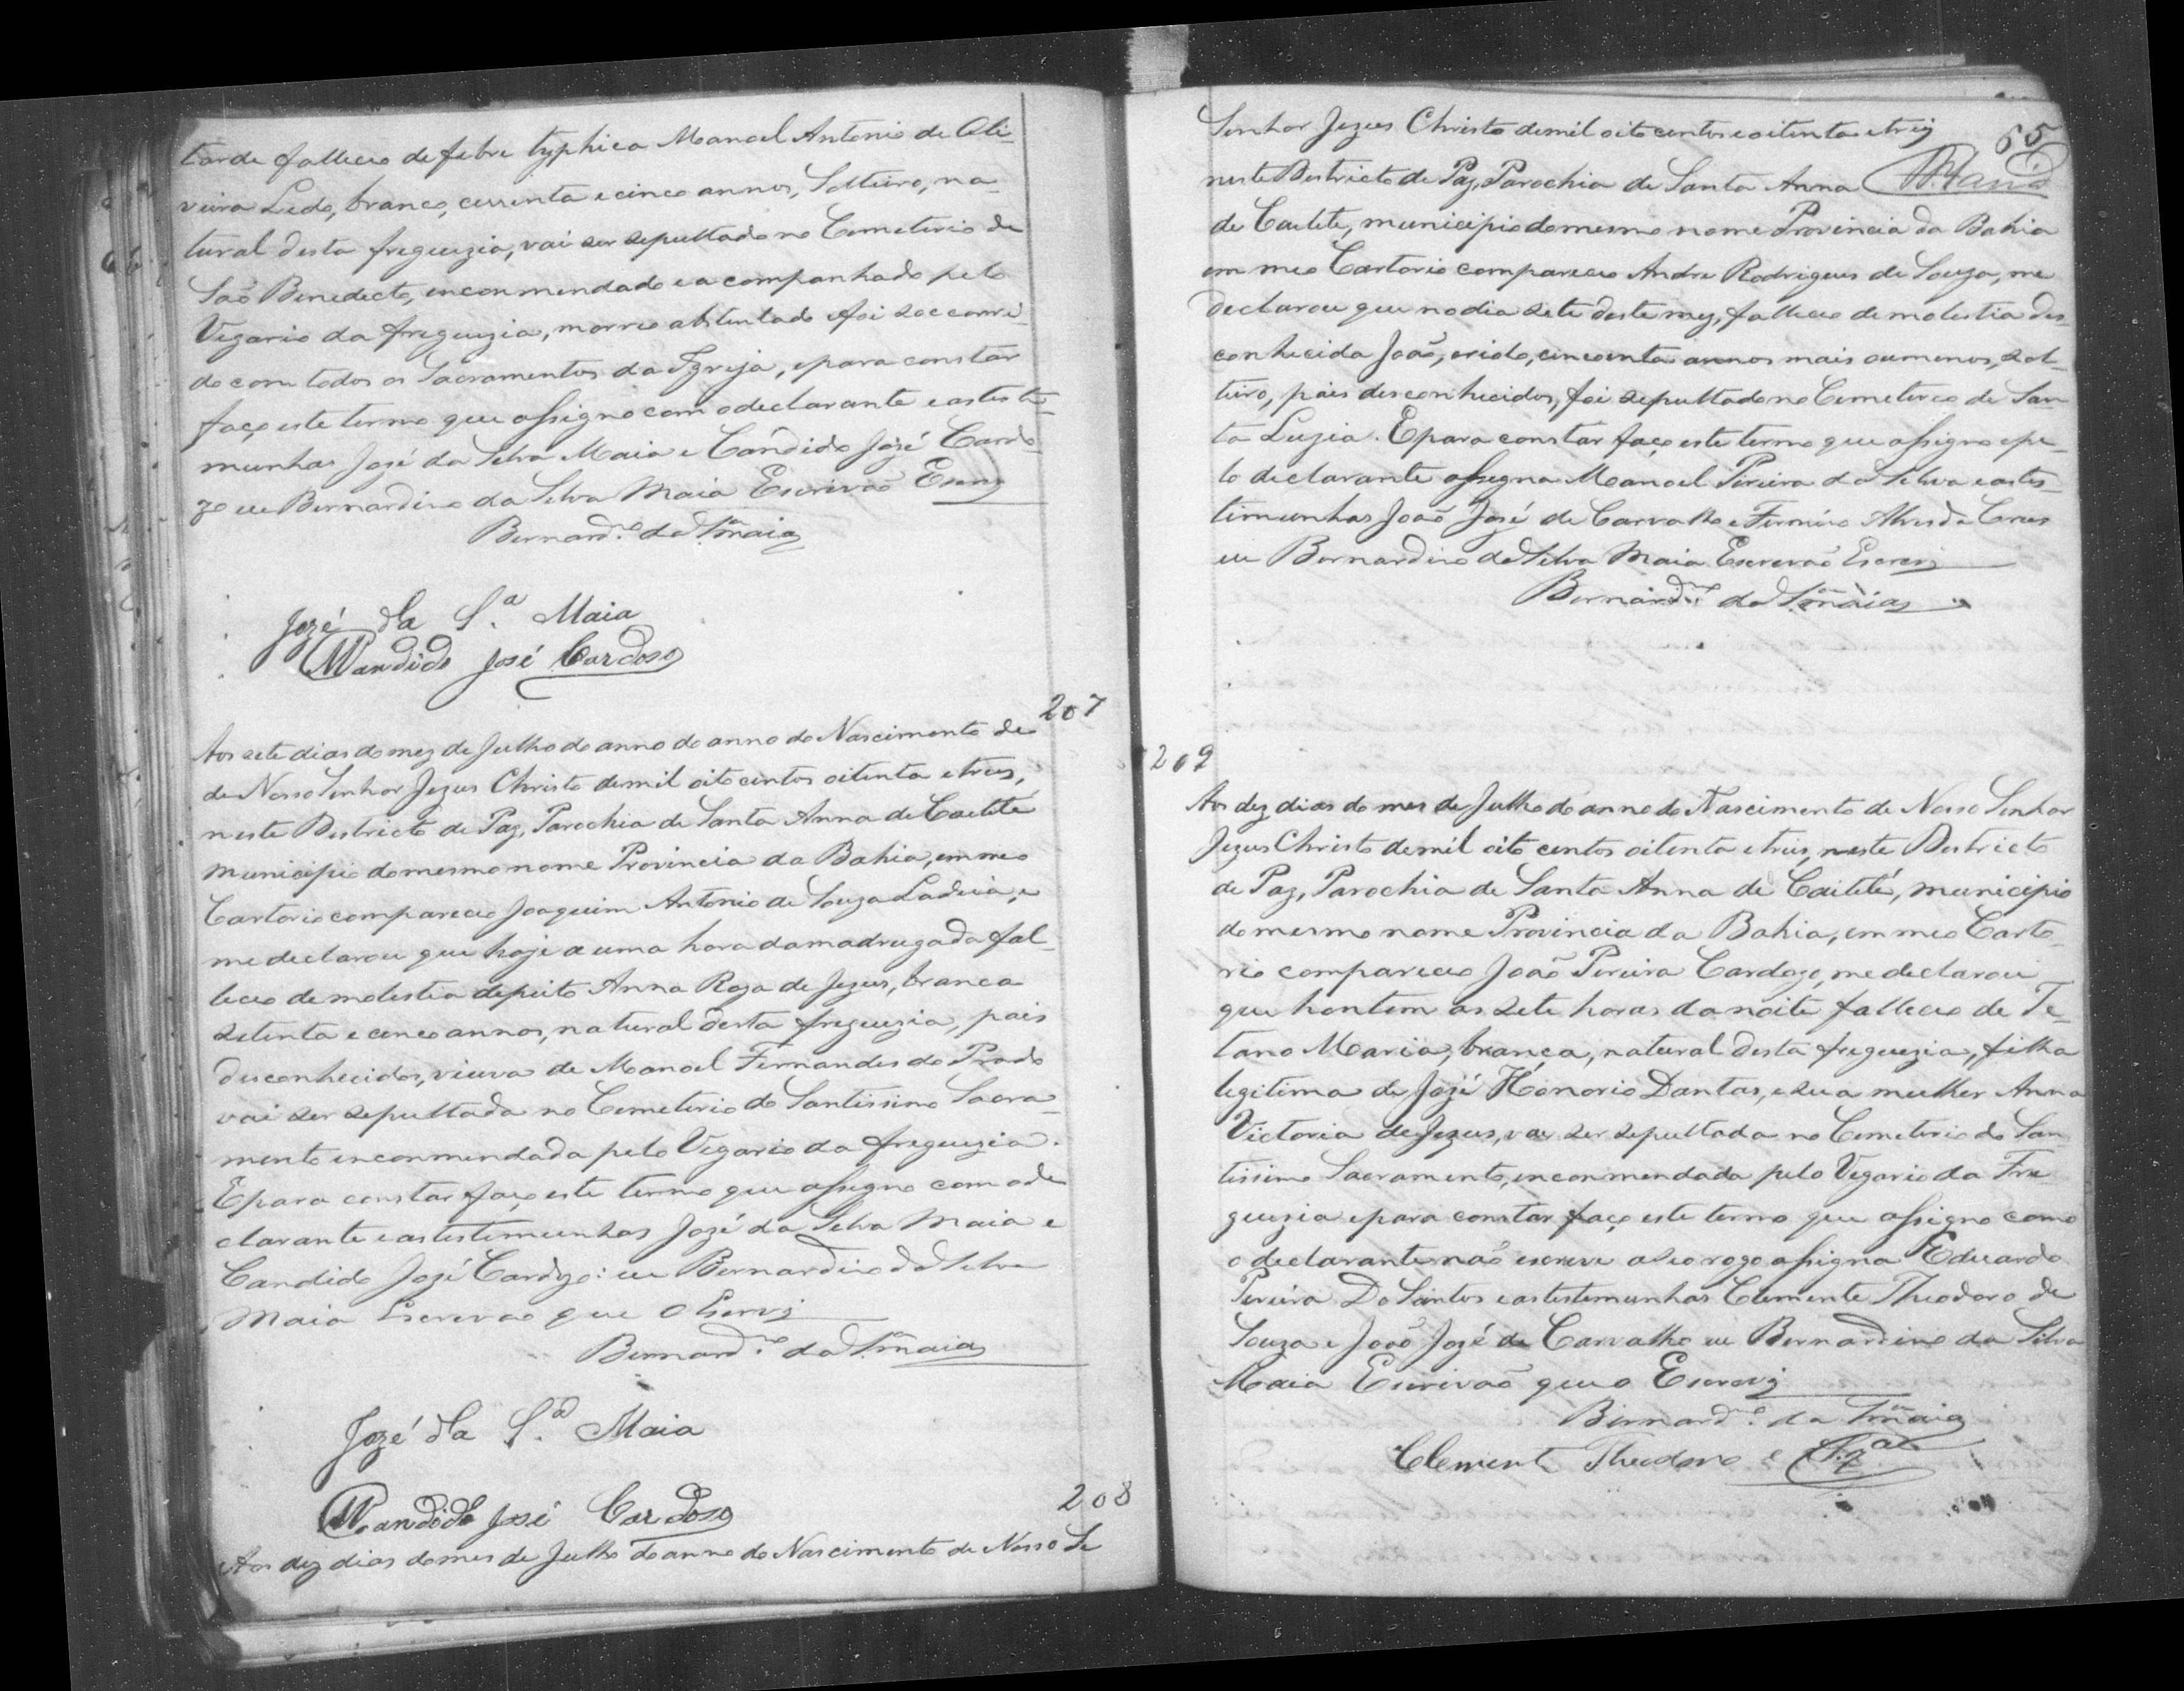 tarde falleceo de febre typhica Manoel Antonio de Oli-
veira Ledo, branco, cessenta e cinco annos, Solteiro, na-
tural desta freguezia, vai ser sepultado no Cemeterio de
São Benedicto, encommendado e acompanhado pelo
Vegario da freguezia, morreo abstentado e foi soccorri-
do com todos os Sacramentos da Igreja, e para constar
faço este termo que assigno com o declarante e as teste-
munhas José da Silva Maia e Cândido José Cardo-
zo eu Bernardino da Silva Maia Escrivão
Bernard.no da S.a Maia
José da S.a Maia
Candido José Cardoso
207
Aos sete dias do mez de Julho do anno do anno do Nascimento de
de Nosso Senhor Jezus Christo de mil oito centos oitenta e tres,
neste Destricto de Paz, Parochia de Santa Anna de Caetité
municipio do mesmo nome Provincia da Bahia, em meo
Cartorio compareceo Joaquim Antonio de Souza Ladeia, e
me declarou que hoje a uma hora da madrugada fal-
leceo de molestia de peito Anna Roza de Jezus, branca
setenta e cinco annos, natural desta freguezia, pais
desconhecidos, viuva de Manoel Fernandes do Prado
vai ser sepultada no Cemeterio do Santissimo Sacra-
mento encommendada pelo Vegario da freguezia.
E para constar faço este termo que assigno com o de
clarante e as testemunhas José da Silva Maia e
Candido José Cardozo: eu Bernardino da Silva
Maia Escrevão que o Escrevi
Bernard.no da S.a Maia
José da S.a Maia
Candido José Cardoso
208
Aos dez dias do mes de Julho do anno do Nascimento de Nosso Se
65
Senhor Jezus Christo de mil oito centos e oitenta e trez
neste Destricto de Paz, Parochia de Santa Anna
de Caetité, municipio do mesmo nome Provincia da Bahia
em meo Cartorio compareceo Andre Rodrigues de Souza, me
declarou que no dia sete deste mez, falleceo de molestia des-
conhecida João, criolo, cincoenta annos mais ou menos, sol-
teiro, pais desconhecidos, foi sepultado no Cemeterio de San-
ta Luzia. E para constar faço este termo que assigno e pe-
lo declarante assigna Manoel Pereira da Silva e as tes-
timunhas João José de Carvalho e Firmino Alves da Cruz
eu Bernardino da Silva Maia Escrevão Escrevi
Bernard.no da S.a Maia
209
Aos dez dias do mes de Julho do anno do Nascimento de Nosso Senhor
Jezus Christo de mil oito centos oitenta e treis, neste Destricto
de Paz, Parochia de Santa Anna de Caiteté, municipio
do mesmo nome Provincia da Bahia, em meo Carto-
rio compareceo João Pereira Cardozo, me declarou
que hontem as sete horas da noite falleceo de Te-
tano Maria, branca, natural desta freguezia, filha
legitima de José Honorio Dantas, e sua mulher Anna
Victoria de Jezus, vae ser sepultada no Cemeterio do San
tissimo Sacramento, encommendada pelo Vegario da Fre
guezia e para constar faço este termo que assigno como
o declarante não escreve a seo rogo assigna Eduardo
Pereira Do Santos e as testemunhas Clemente Theodoro de
Souza e João José de Carvalho eu Bernardino da Silva
Maia Escrivão que o Escrevi
Bernard.no da S.a Maia
Clemente Theodoro